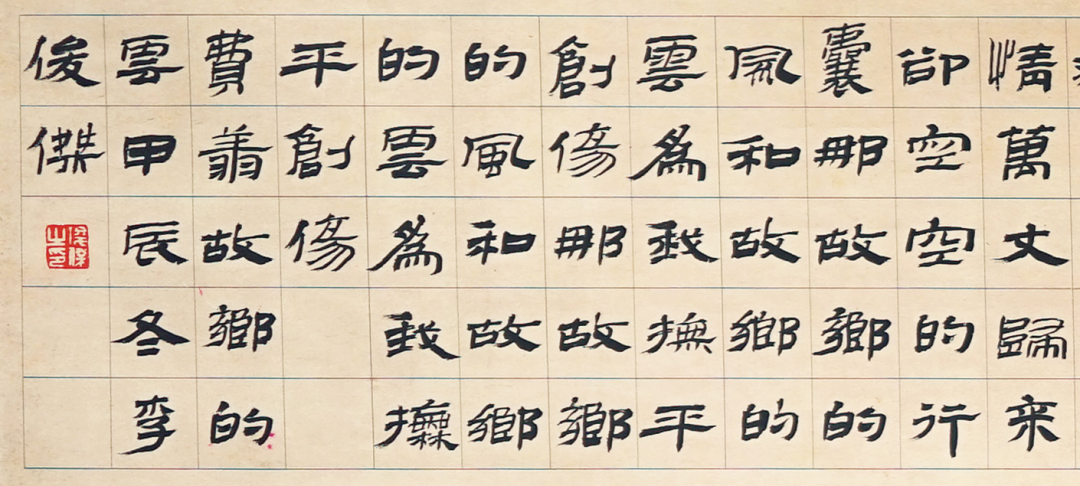 情萬丈歸来
卻空空的行
囊那故鄉的
風和故鄉的
雲為我撫平
創傷那故鄉
的風和故鄉
的雲為我撫
平創傷
費翔故鄉的
雲甲辰冬李
俊傑
俊傑之印